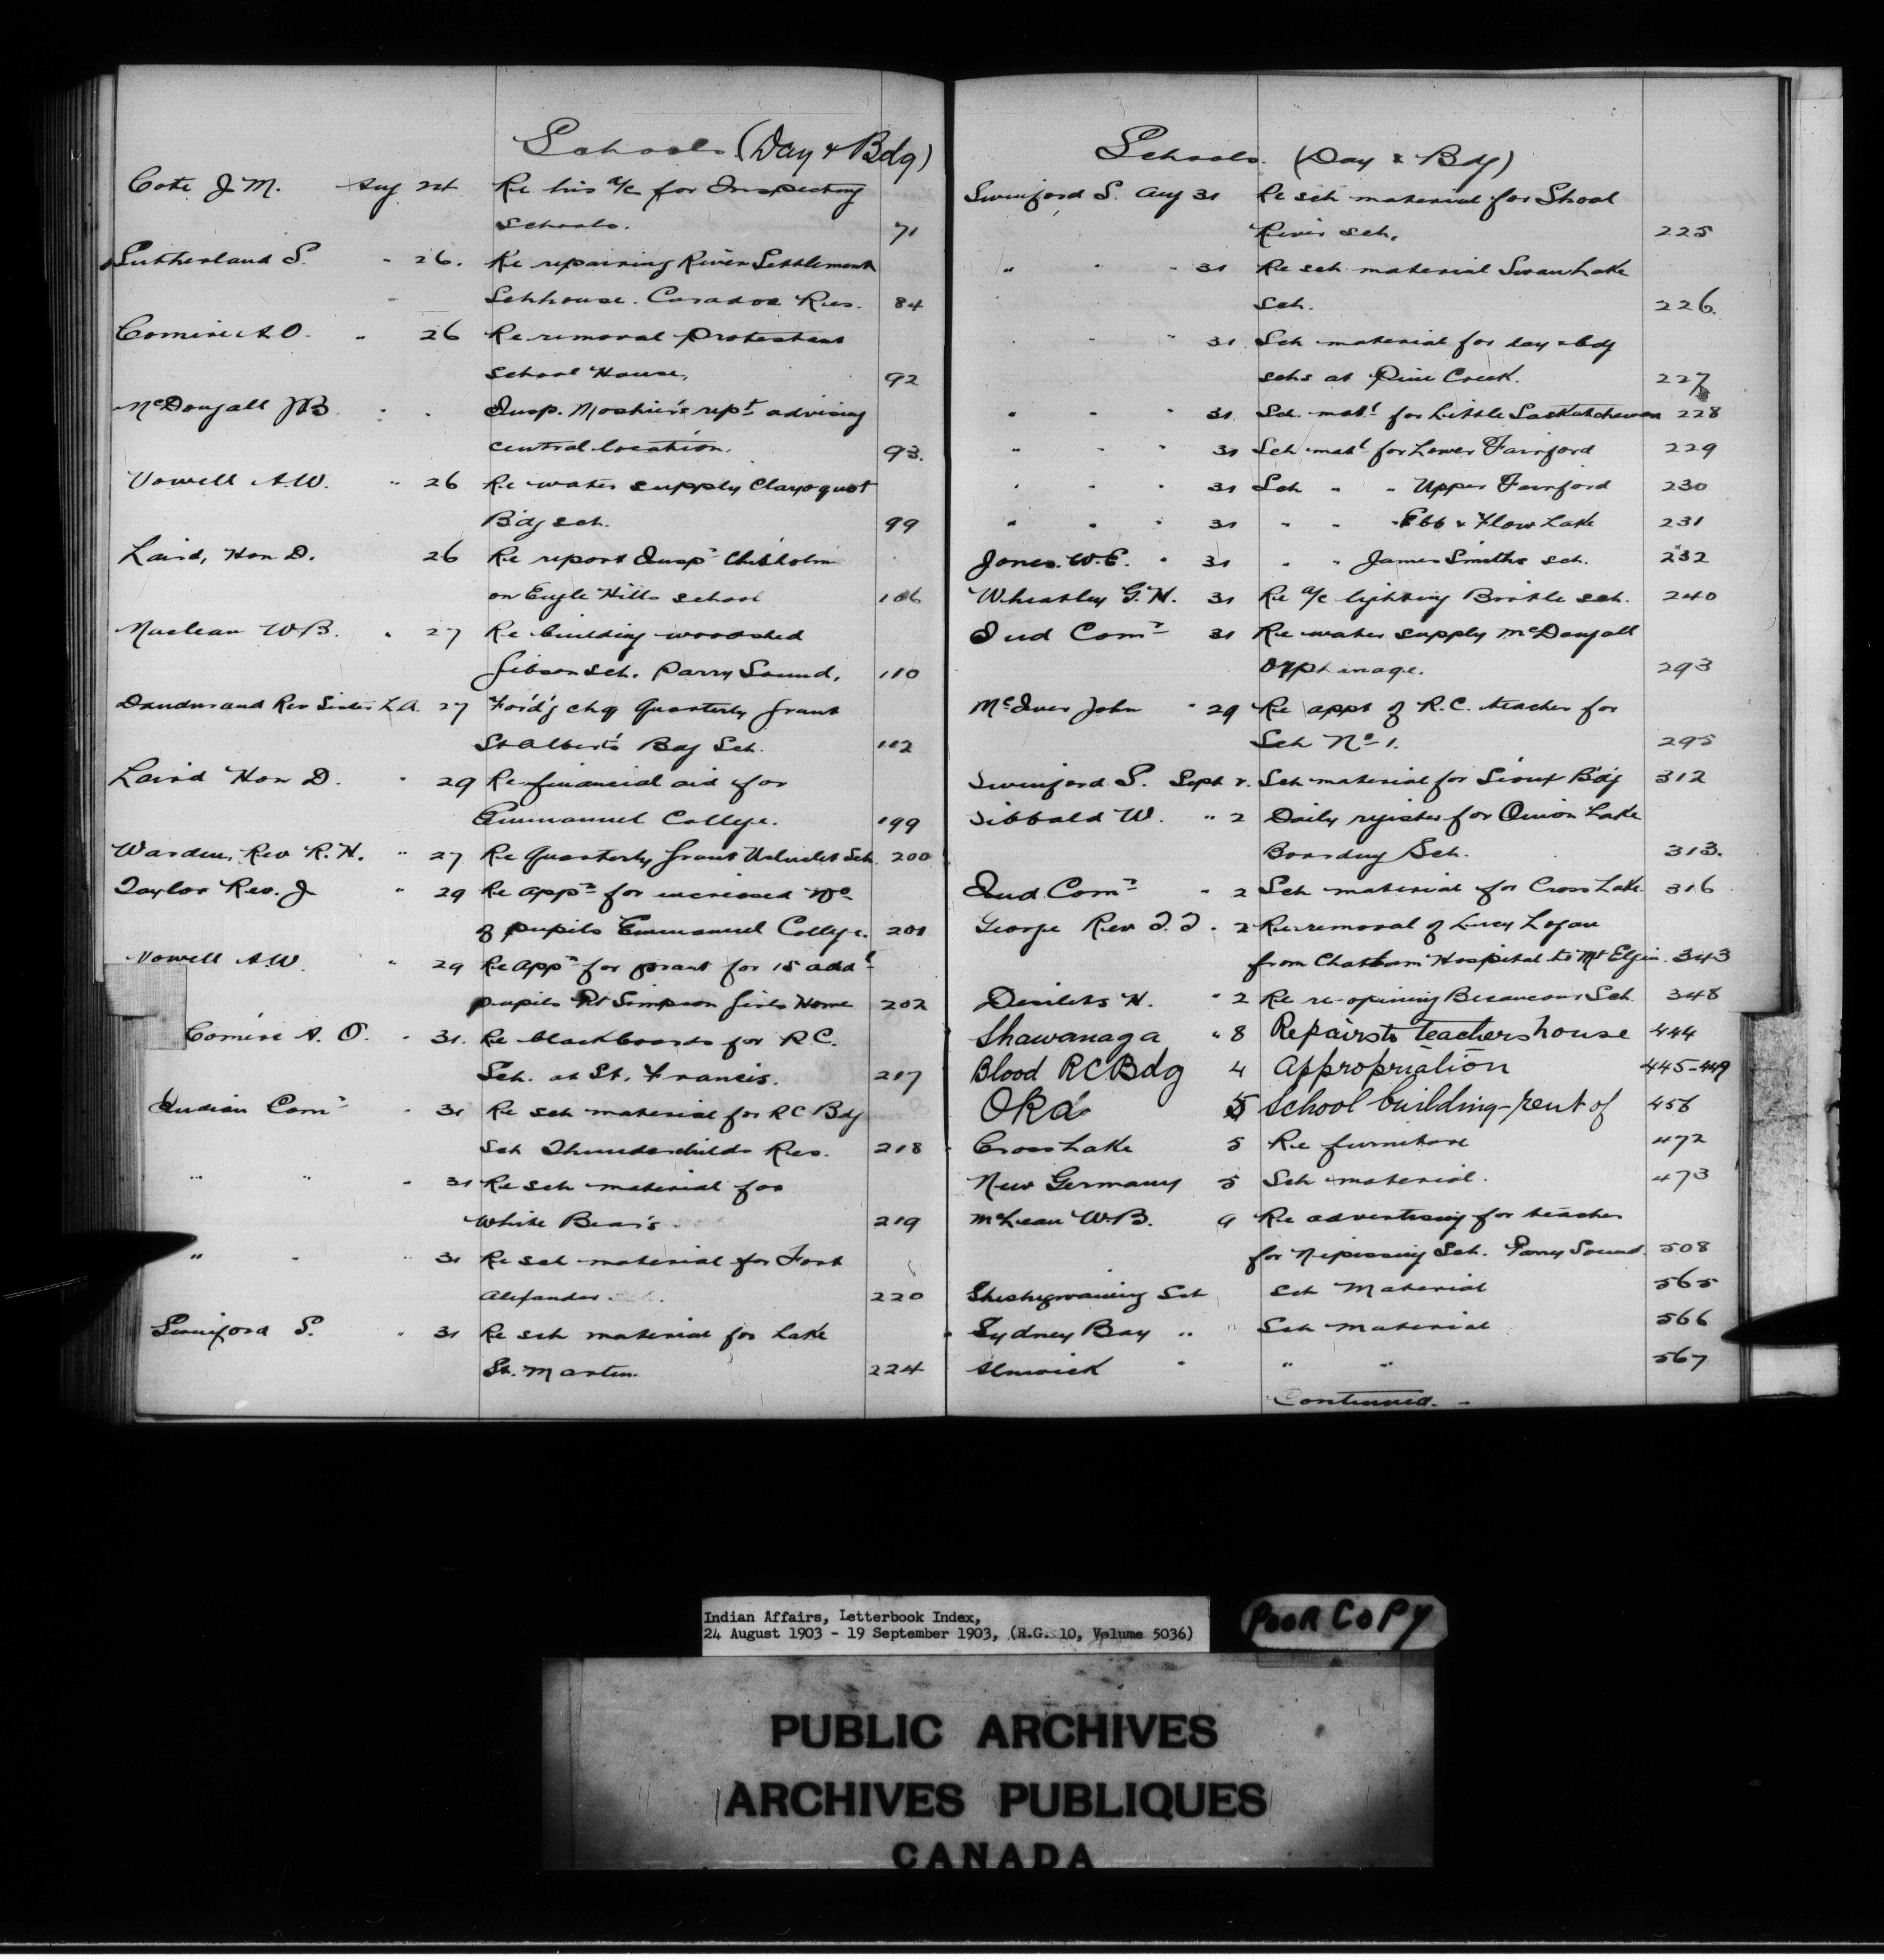 Schools (Day & Bdg)
Cote J. M. Aug 24 Re his a/c for Inspecting
Schools. 71
Sutherland S. " 26. Re repairing River Settlement
Schhouse. Caradoc Res. 84
Comire A.O. " 26 Re removal Protestant
School House, 92
McDougall JB " " Insp. Moshier's rept advising
central location. 93.
Vowell A.W. " 26 Re water supply Clayoquot
Bdg sch. 99
Laird, Hon D. 26 Re report Insp Chisholm
on Eagle Hills school 106
Maclean W.B. " 27 Re building woodshed
Gibson sch. Parry Sound, 110
Dandurand Rev Sister L.A. 27 Ford'g chq Quarterly grant
St Albert's Bdg Sch. 112
Laird Hon D. " 29 Re financial aid for
Emmanuel College. 199
Warden, Rev R. H. " 27 Re Quarterly grant Ucluelet Sch 200
Taylor Rev. J " 29 Re appn for increased No
of pupils Emmanuel College. 201
Vowell A.W. " 29 Re appn for grant for 15 addl
pupils Pt Simpson Girls Home 202
Comire A. O. " 31. Re blackboards for R.C.
Sch. at St. Francis. 217
Indian Comr " 31 Re sch material for RC Bdg
Sch Thunderchilds Res. 218
" " " 31 Re sch material for
White Bear's 219
" " " 31 Re sch material for Fort
Alexander 220
Swinford S. " 31 Re sch material for Lake
St. Martin. 224
Schools. (Day & Bdg)
Swinford S. Aug 31 Re sch material for Shoal
River sch. 225
" " " 31 Re sch material Swan Lake
sch. 226.
" " " 31 Sch material for day & bdg
schs at Pine Creek. 227
" " " 31 Sch. matl for Little Saskatchewan 228
" " " 31 Sch matl for Lower Fairford 229
" " " 31 Sch " " Upper Fairford 230
" " " 31 " " " Ebb & Flow Lake 231
Jones. W.E. " 31 " " James Smiths sch. 232
Wheatley G. H. 31 Re a/c lighting Birtle sch. 240
Ind Comr 31 Re water supply McDougall
Orphanage. 293
McIver John " 29 Re appt of R.C. teacher for
Sch No 1. 295
Swinford S. Sept 2. Sch material for Sioux Bdg 312
Sibbald W. " 2 Daily register for Onion Lake
Boarding Sch. 313.
Ind Comr " 2 Sch material for Cross Lake 316
George Rev T. T. " 2 Re removal of Lucy Logan
from Chatham Hospital to Mt Elgin. 343
Desilets H. " 2 Re re-opening Becancour Sch. 348
Shawanaga " 8 Repairs to teachers house 444
Blood RC Bdg 4 Appropriation 445-449
Oka 5 School building - rent of 456
Cross Lake 5 Re furniture 472
New Germany 5 Sch material. 473
McLean W.B. 9 Re advertising for teacher
for Nipissing Sch. Parry Sound. 508
Sheshegwaning Sch Sch Material 565
Sydney Bay " " Sch Material 566
Alnwick " " " 567
Continued. -
Indian Affairs, Letterbook Index,
24 August 1903 - 19 September 1903, (R.G. 10, Volume 5036)
POOR COPY
PUBLIC ARCHIVES
ARCHIVES PUBLIQUES
CANADA